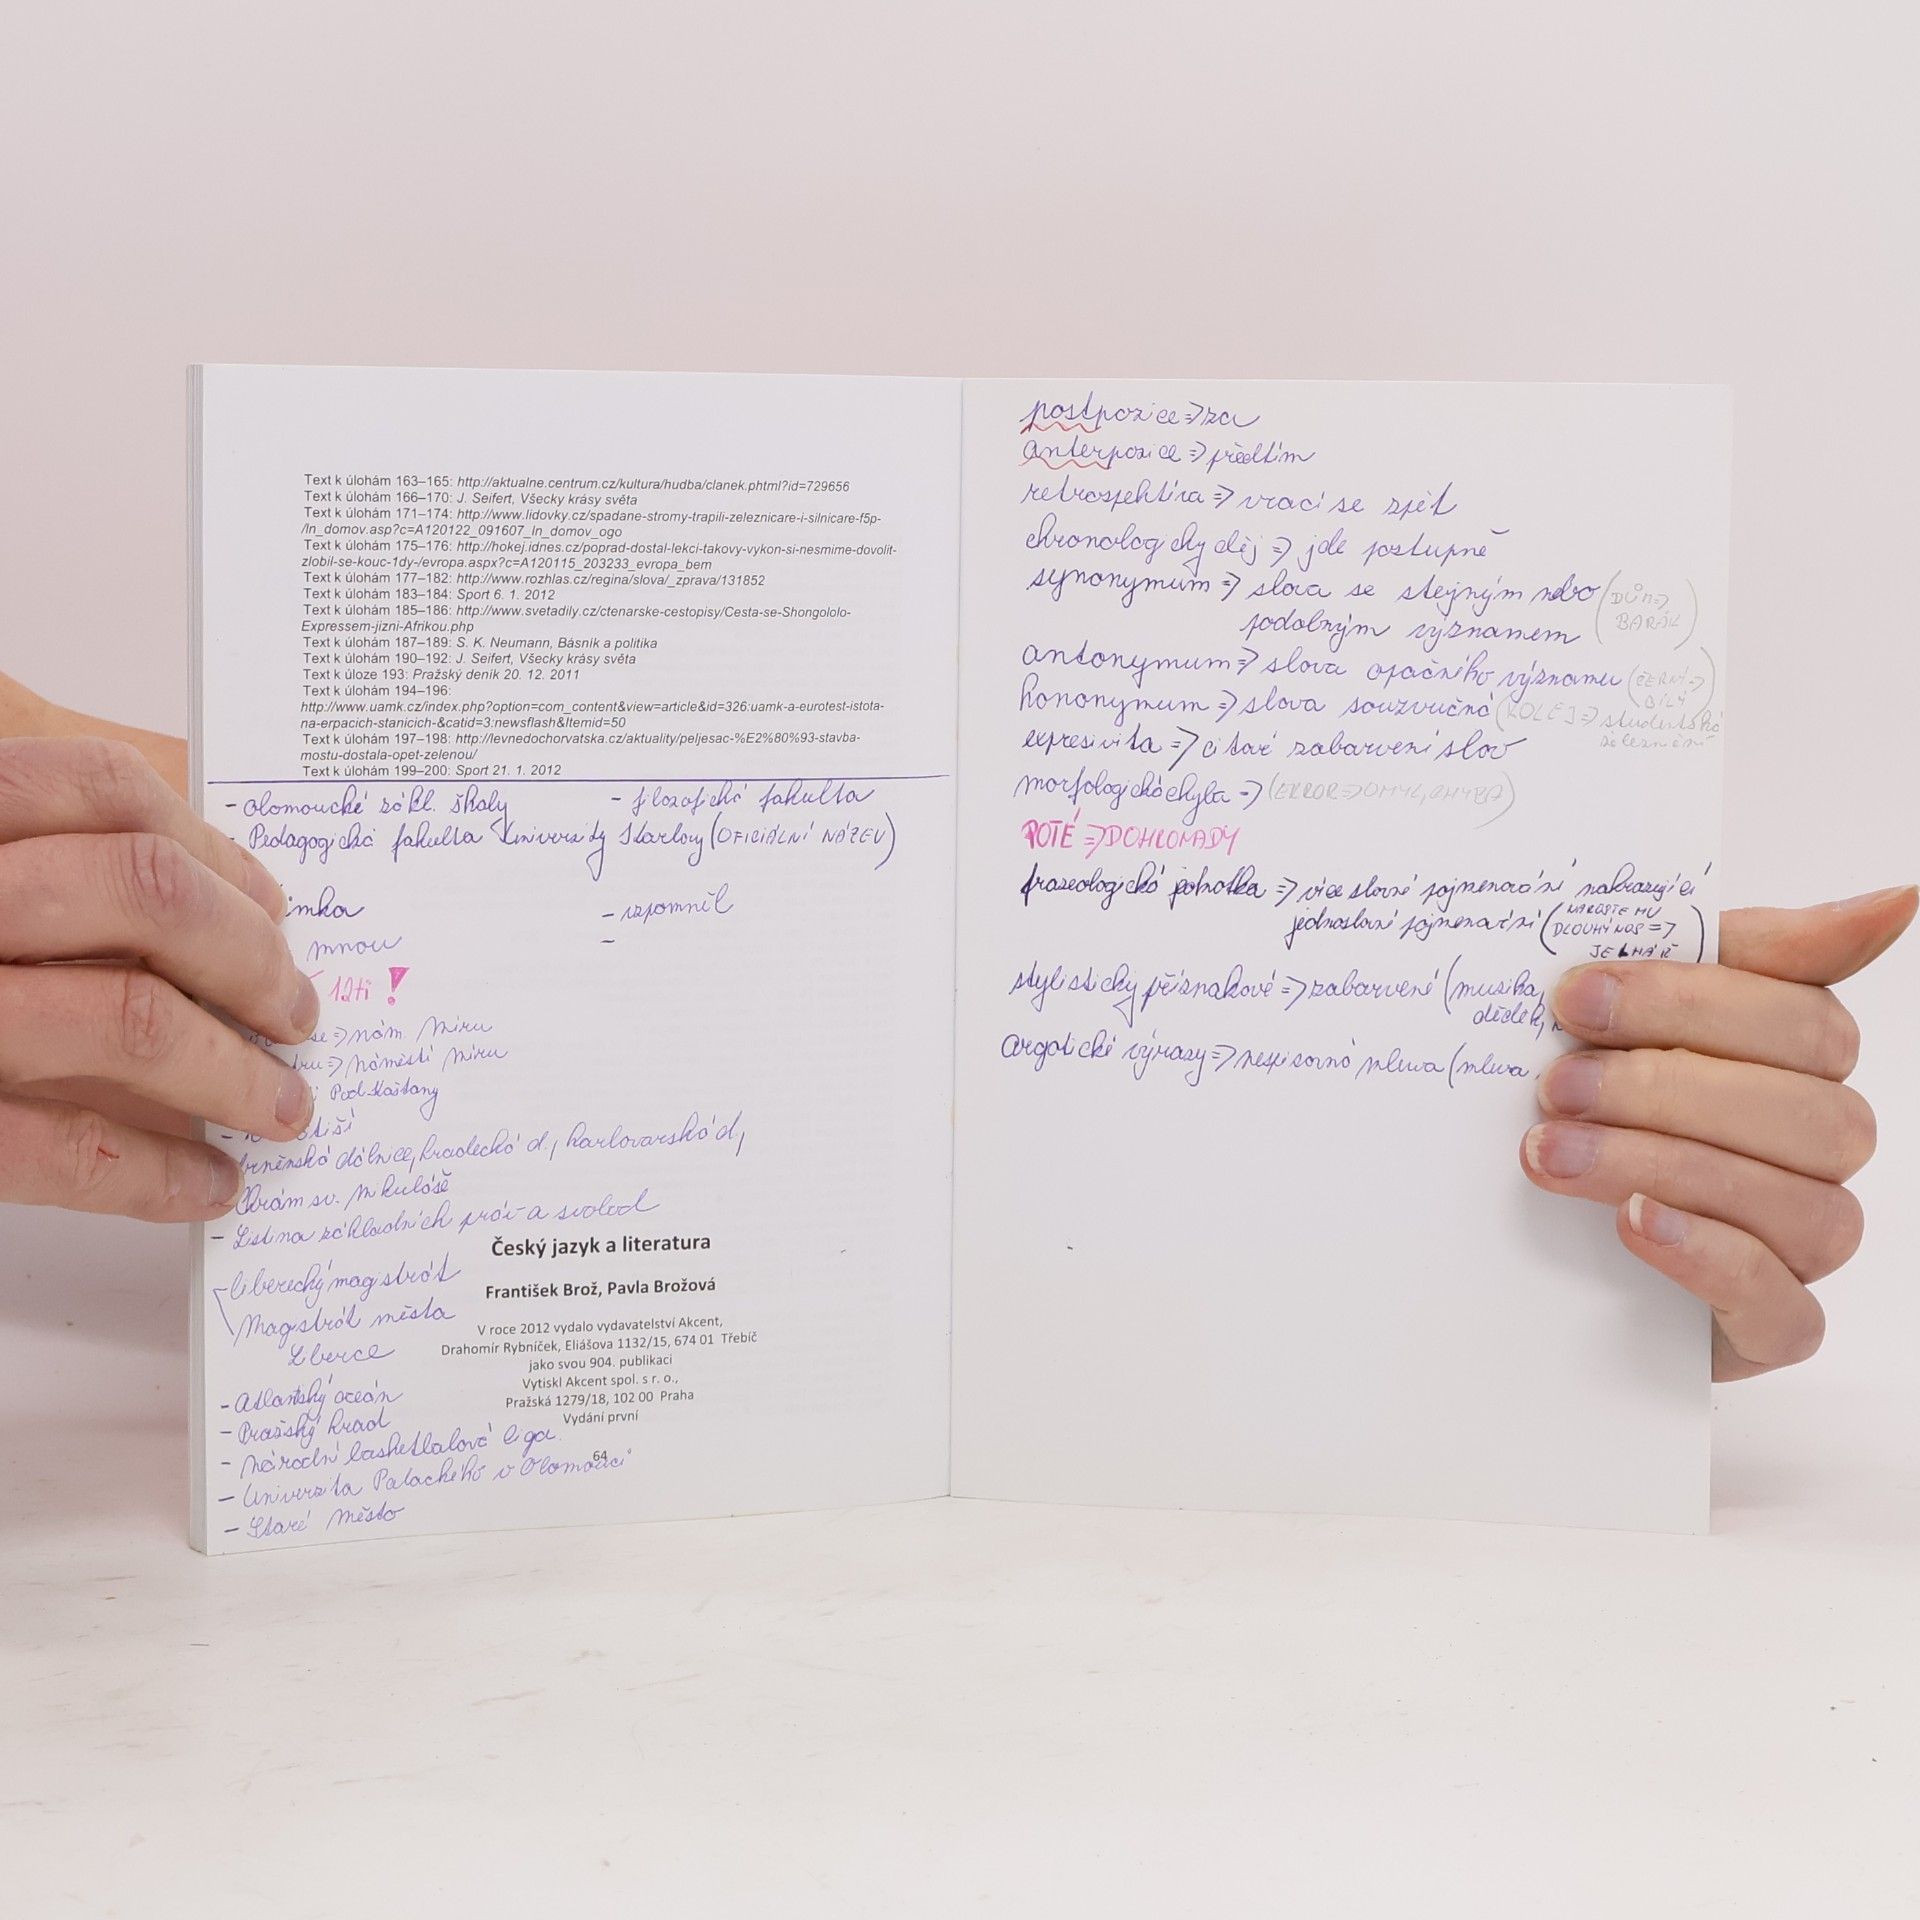 Text k úlohám 163–165: http://aktualne.centrum.cz/kultura/hudba/clanek.phtml?id=729656
Text k úlohám 166–170: J. Seifert, Všecky krásy světa
Text k úlohám 171–174: http://www.lidovky.cz/spadane-stromy-trapili-zeleznicare-i-silnicare-f5p-
/ln_domov.asp?c=A120122_091607_ln_domov_ogo
Text k úlohám 175–176: http://hokej.idnes.cz/poprad-dostal-lekci-takovy-vykon-si-nesmime-dovolit-
zlobil-se-kouc-1dy-/evropa.aspx?c=A120115_203233_evropa_bem
Text k úlohám 177–182: http://www.rozhlas.cz/regina/slova/_zprava/131852
Text k úlohám 183–184: Sport 6. 1. 2012
Text k úlohám 185–186: http://www.svetadily.cz/ctenarske-cestopisy/Cesta-se-Shongololo-
Expressem-jizni-Afrikou.php
Text k úlohám 187–189: S. K. Neumann, Básník a politika
Text k úlohám 190–192: J. Seifert, Všecky krásy světa
Text k úloze 193: Pražský deník 20. 12. 2011
Text k úlohám 194–196:
http://www.uamk.cz/index.php?option=com_content&view=article&id=326:uamk-a-eurotest-istota-
na-erpacich-stanicich-&catid=3:newsflash&Itemid=50
Text k úlohám 197–198: http://levnedochorvatska.cz/aktuality/peljesac-%E2%80%93-stavba-
mostu-dostala-opet-zelenou/
Text k úlohám 199–200: Sport 21. 1. 2012
- olomoucké zákl. školy - filozofická fakulta
- Pedagogická fakulta Univerzity Karlovy (OFICIÁLNÍ NÁZEV)
- vzpomněl
mnou
12ti !
=> nám. Míru
=> náměstí Míru
Pod Kaštany
brněnská dálnice, hradecká d., karlovarská d.,
Chrám sv. Mikuláše
- Listina základních práv a svobod
- liberecký magistrát
Magistrát města
Liberce
- Atlantský oceán
- Pražský hrad
- Národní basketbalová liga
- Univerzita Palackého v Olomouci
- Staré Město
Český jazyk a literatura
František Brož, Pavla Brožová
V roce 2012 vydalo vydavatelství Akcent,
Drahomír Rybníček, Eliášova 1132/15, 674 01 Třebíč
jako svou 904. publikaci
Vytiskl Akcent spol. s r. o.,
Pražská 1279/18, 102 00 Praha
Vydání první
64
postpozice => za
anterpozice => předtím
retrospektiva => vrací se zpět
chronologický děj => jde postupně
synonymum => slova se stejným nebo (DŮM =>
podobným významem BARÁK)
antonymum => slova opačného významu (ČERNÝ =>
BÍLÝ)
homonymum => slova souzvučná (KOLEJ => studentská
železniční
expresivita => citové zabarvení slov
morfologická chyba => (ERROR => OMYL, CHYBA)
POTÉ => DOHROMADY
frazeologická jednotka => víceslovné pojmenování nahrazující
jednoslovné pojmenování (NAROSTE MU
DLOUHÝ NOS =>
JE LHÁŘ
stylisticky příznakové => zabarvené (muzika,
dědek,
argotické výrazy => nespisovná mluva (mluva